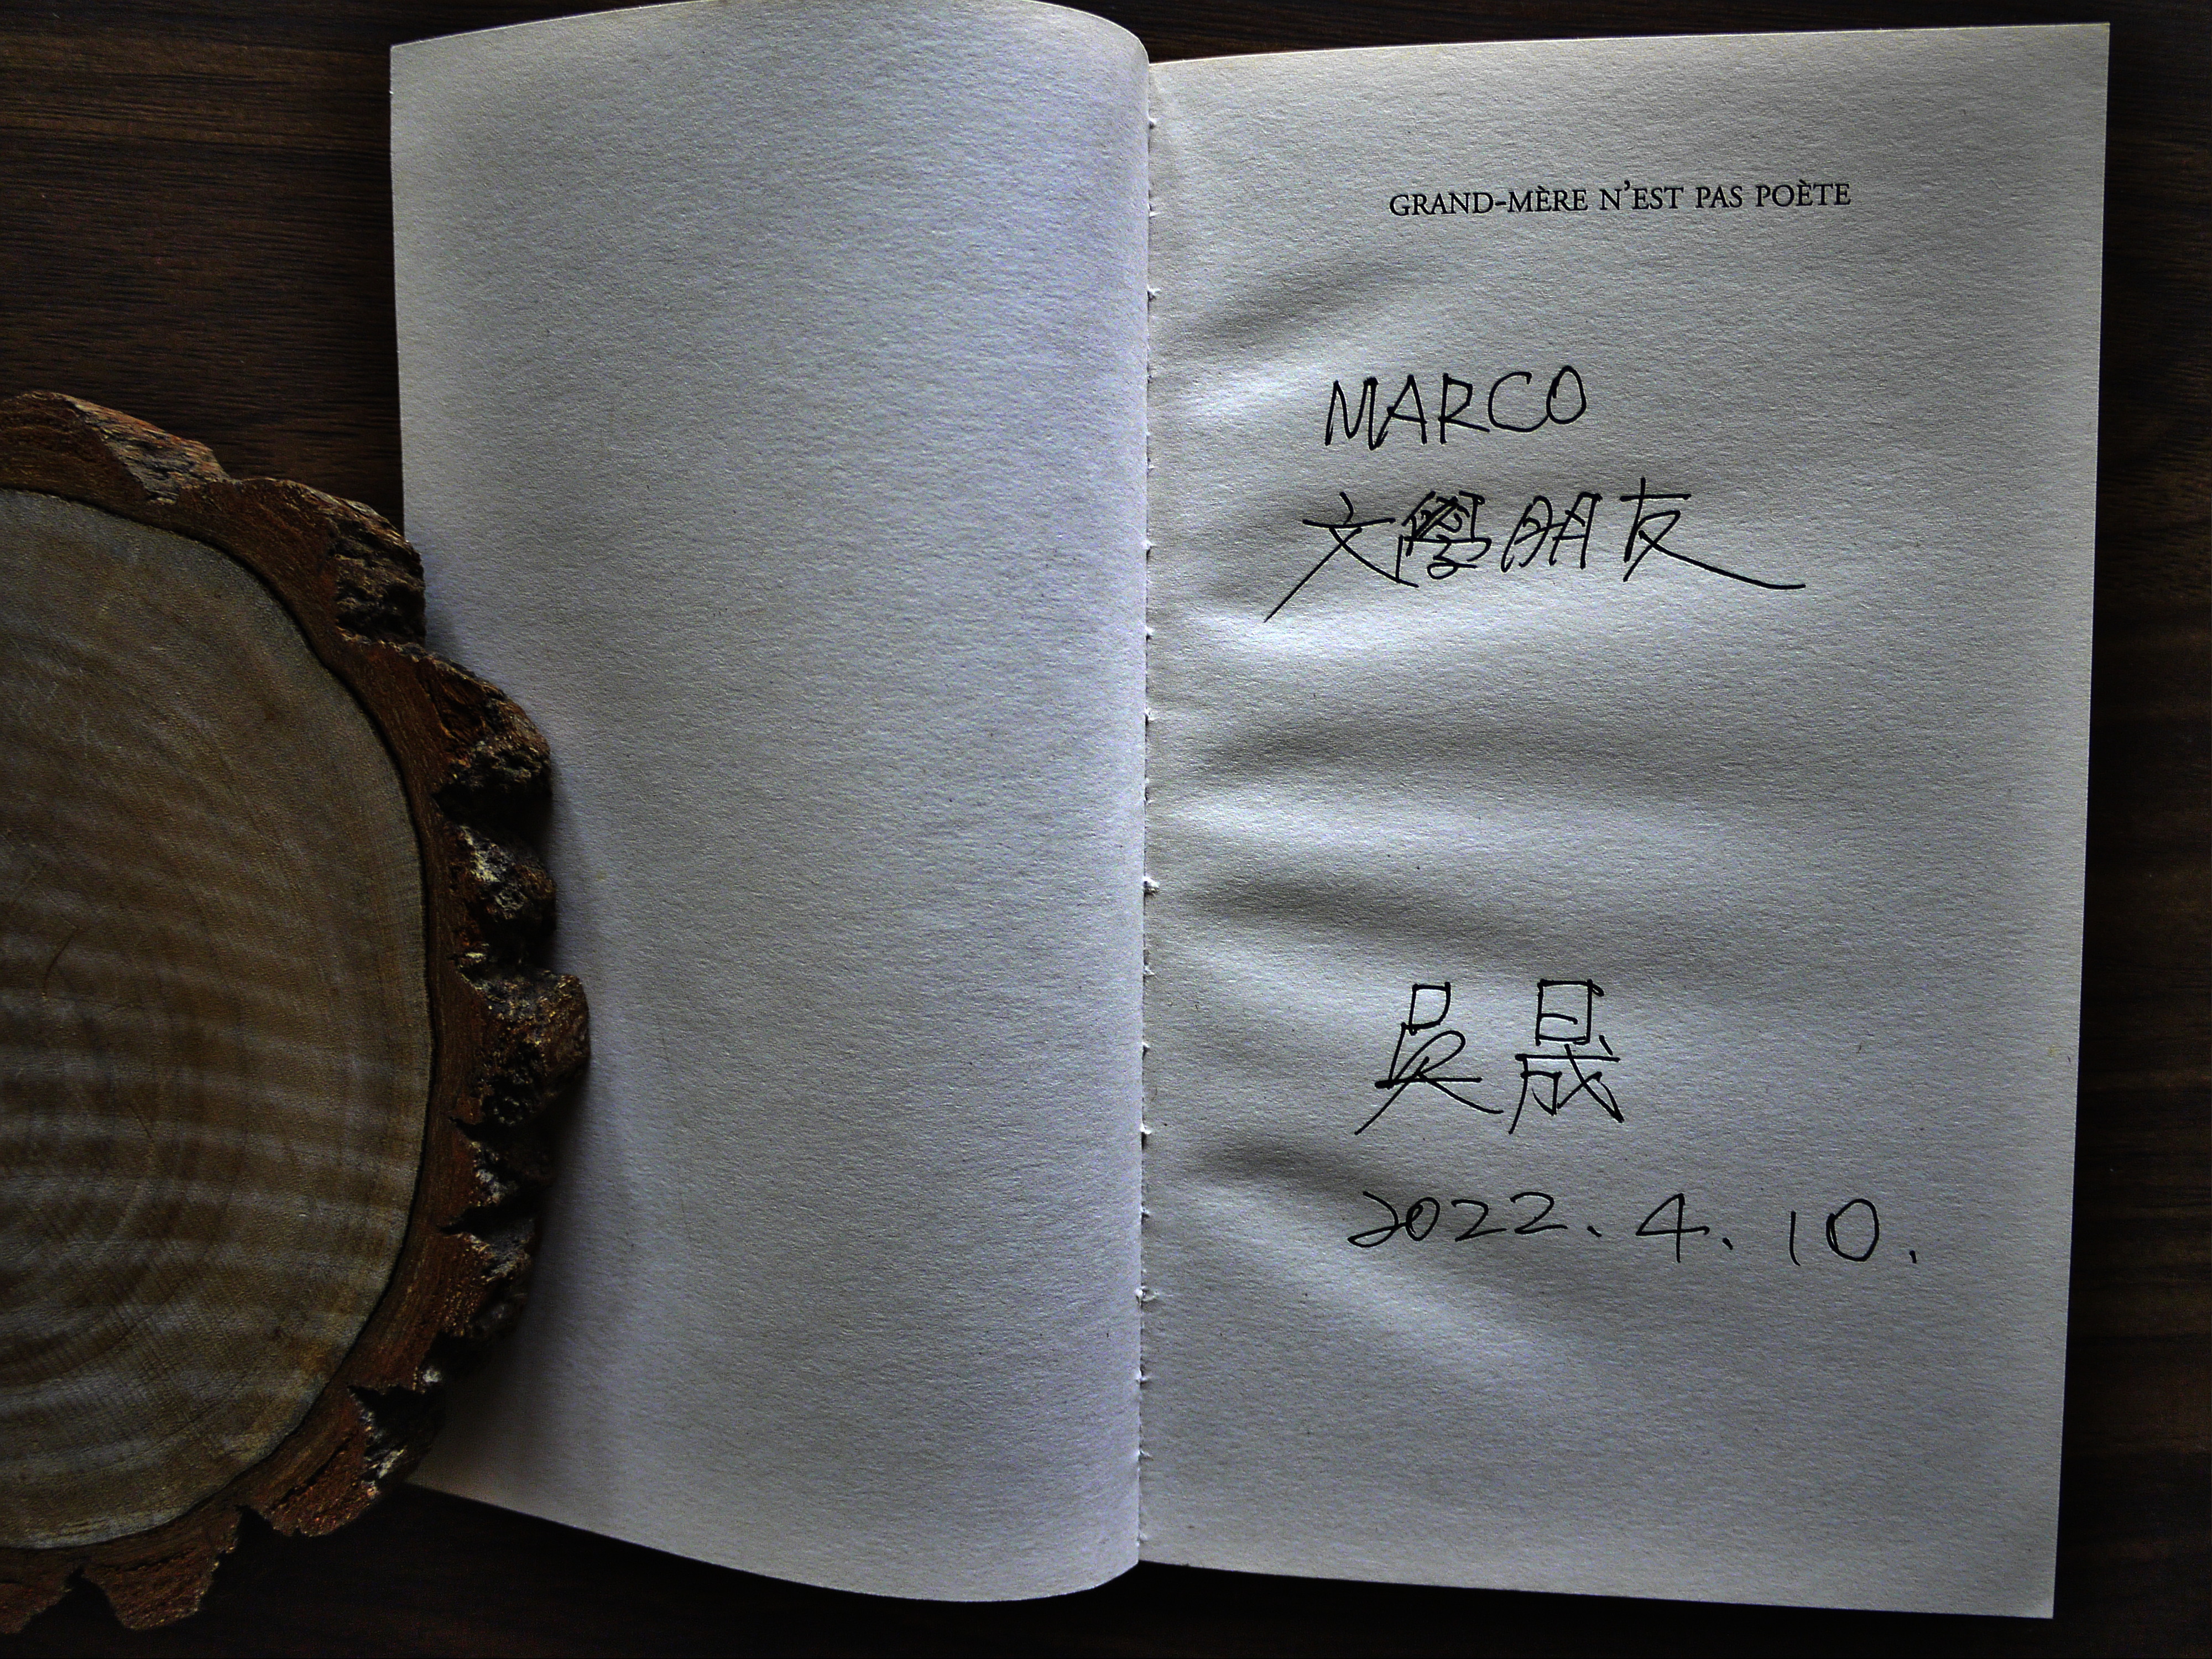 GRAND-MÈRE N'EST PAS POÈTE
MARCO
文學朋友
吳晟
2022.4.10.